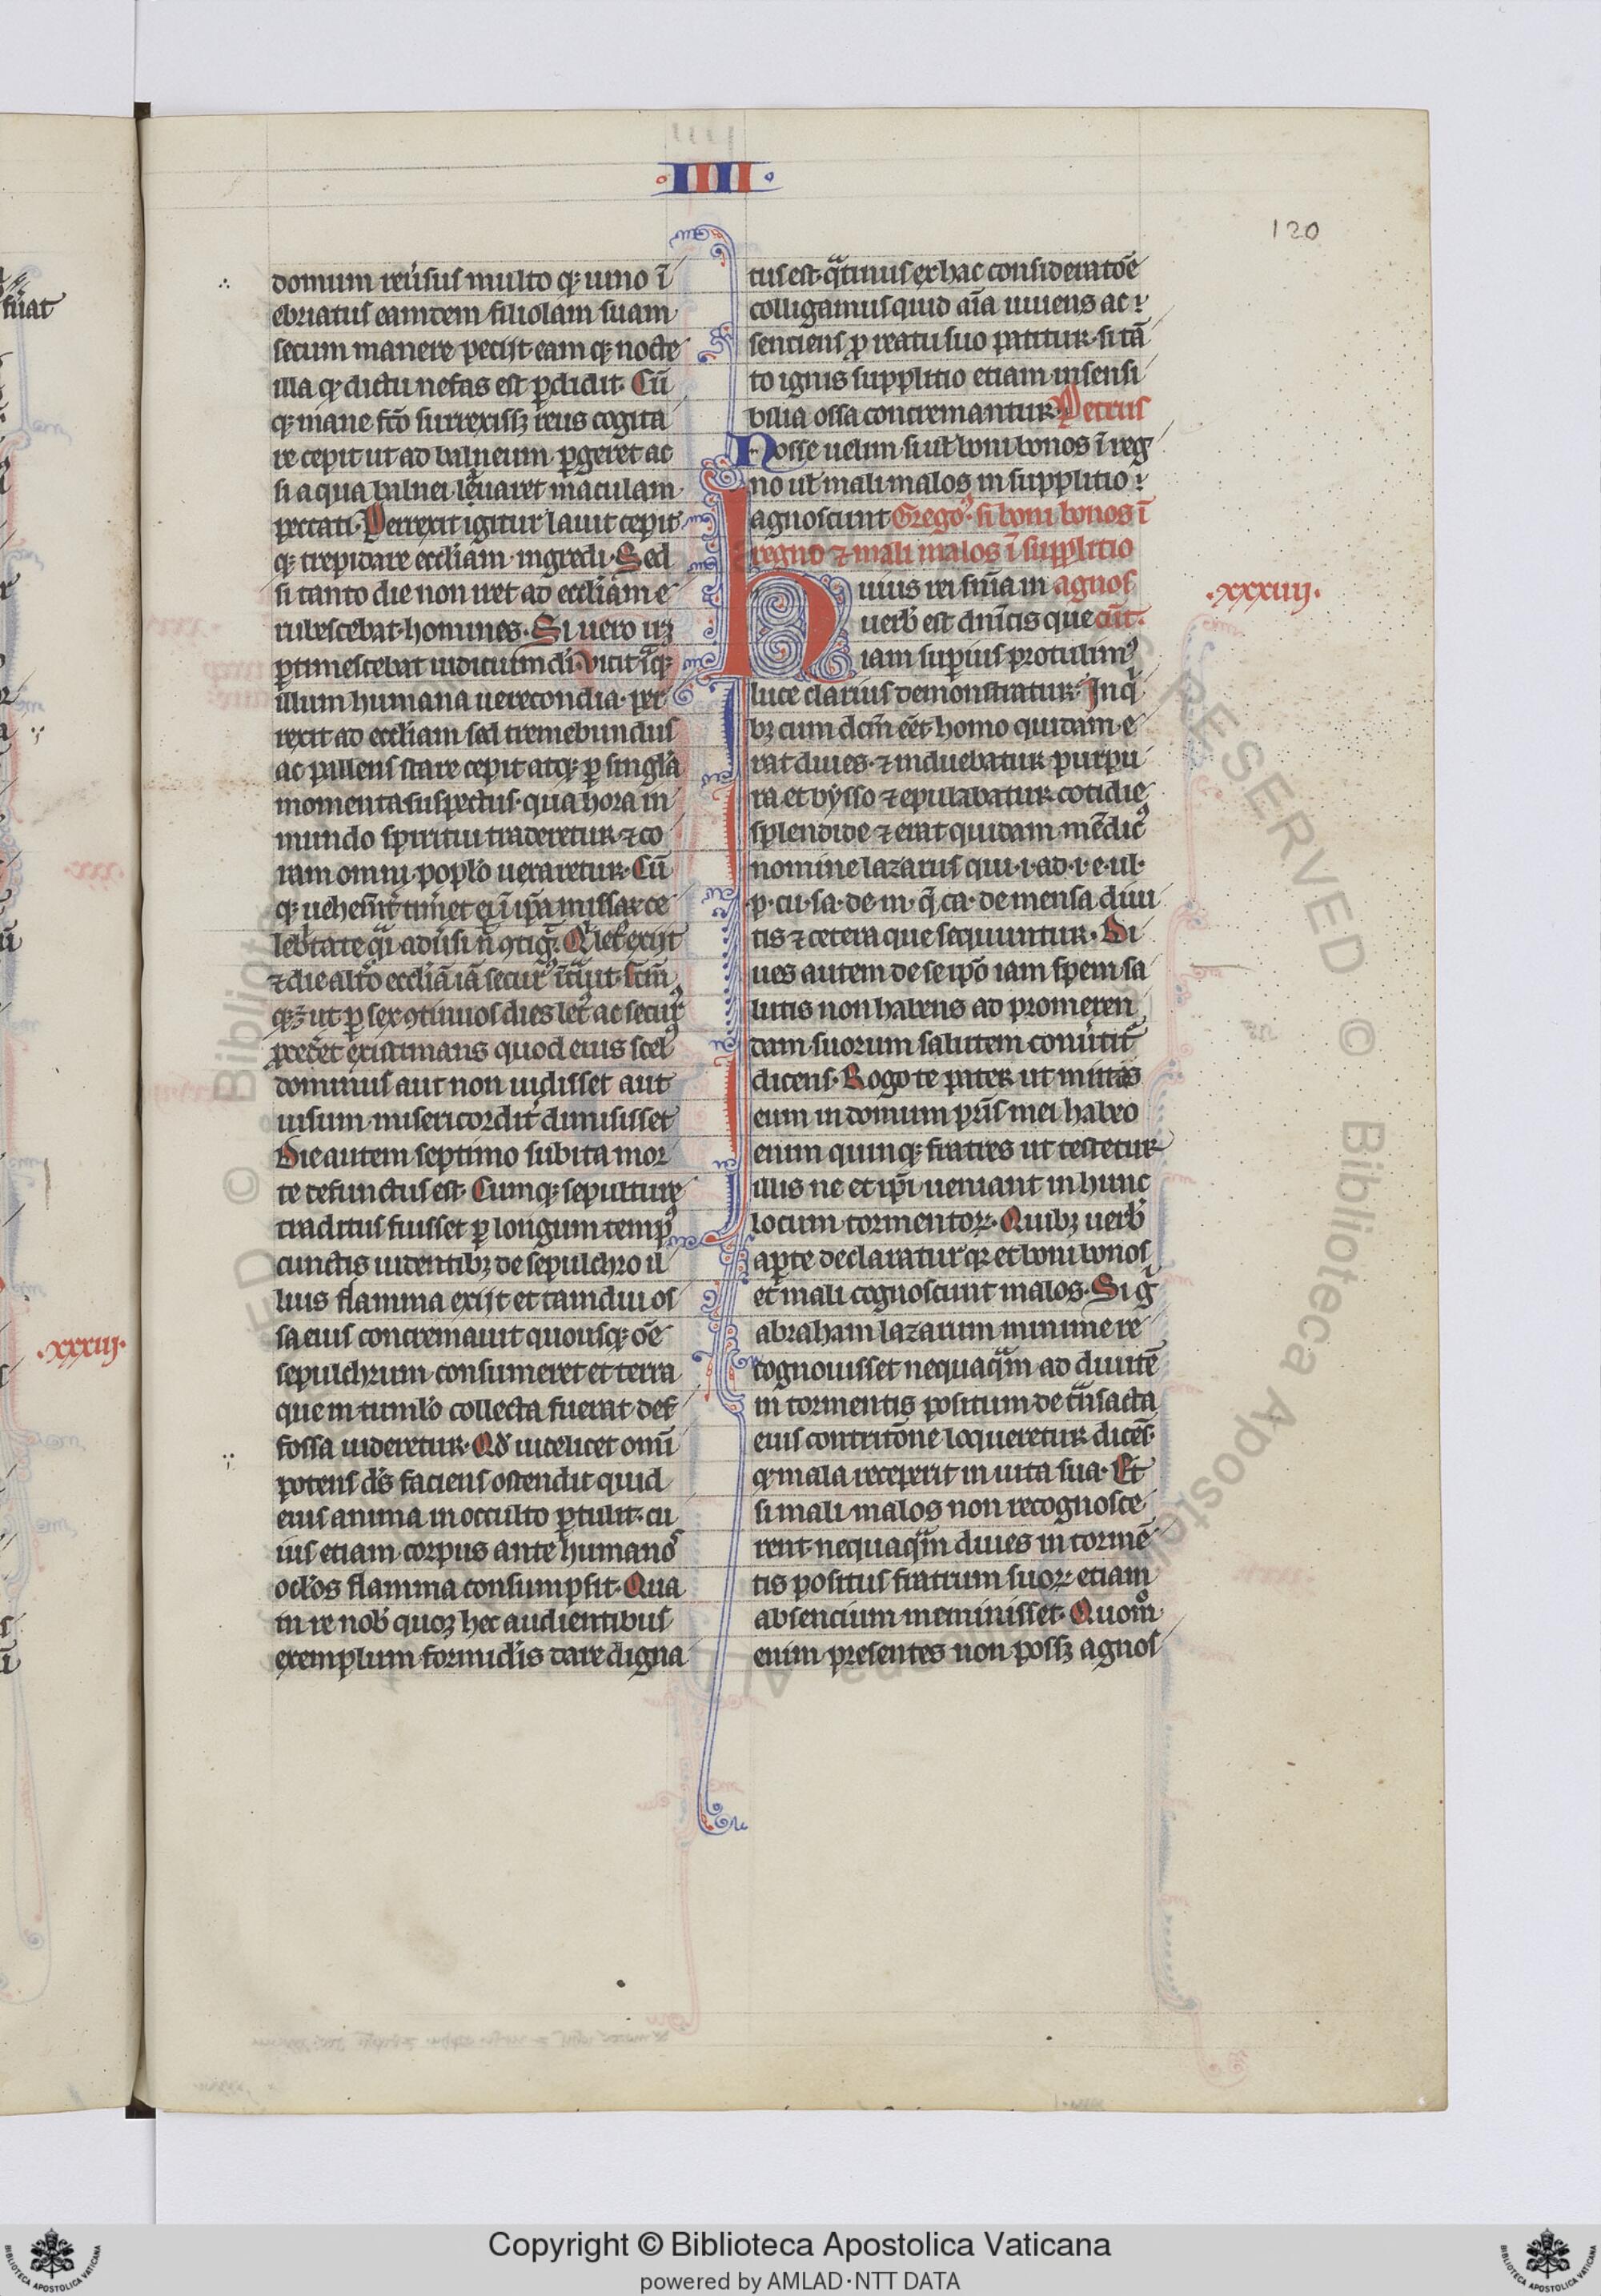 IIII
120
domum reu̓sus multo q; uino ī
ebriatus eamdem filiolam suam
secum manere pecijt eam q; nocte
illa qd̓ dictu nefas est ꝑdidit. Cū
q; mane fc̄o surrexissꝫ reus cogita
re cepit ut ad balneum ꝑgeret ac
si aqua balnei leuaret maculam
peccati. Perrexit igitur lauit cepit
q; trepidare eccl̓iam ingredi. Sed
si tanto die non iret ad eccl̓iam e
rubescebat homines. Si uero iꝫ
ꝑtimescebat iudicium dī. Vicit itaq;
illum humana uerecondia. per
rexit ad eccl̓iam sed tremebundus
ac pallens stare cepit atq; ꝑ singl̓a
momenta suspectus. qua hora in
mundo spiritui traderetur ⁊ co
ram omni popl̓o uexaretur. Cū
q; uehem̓t̓ tim̓et ei ī ip̄a missar̓ ce
leb̓tate q̓i adu̓si n̄ ꝯtig̓. Q̓ let̓ exijt
⁊ die alt̓o eccl̓iā iā secur̓ ītuit. Factū
q;ꝫ ut ꝑ sex ꝯtinuos dies let̓ ac secur̓
ꝓced̓et existimans quod eius scel̓
dominus aut non uidisset aut
uisum misericordit̓ dimisisset
Die autem septimo subita mor
te defunctus est. Cumq; sepulture
traditus fuisset ꝑ longum temp̓
cunctis uidentibꝫ de sepulchro il
lius flamma exijt et tamdiu os
sa eius concremauit quousq; oē
sepulchrum consumeret et terra
que in tumul̓o collecta fuerat def
fossa uideretur. Qd̓ uidelicet omī
potens d̄s faciens ostendit quid
eius anima in occulto ꝑtulit. cu
ius etiam corpus ante humanos
ocl̓os flamma consumpsit. Qua
in re nob̓ quoꝫ hec audientibus
exemplum formidīs dare digna
tus est. q̓tinus ex hac consideratōe
colligamus quid aīa uiuens ac
senciens ꝓ reatu suo patitur. si tā
to ignis supplitio etiam insensi
bilia ossa concremantur. Petrus
Nosse uelim si ul̓ boni bonos ī reg
no ul̓ mali malos in supplitio
agnoscunt Grego᷒. si boni bonos ī
regno ⁊ mali malos ī supplitio
agnos
cūt.
.xxxiiii.
Huius rei sn̄ia in
uerb̓ est dn̄icis que
iam suꝑius protulim᷒
luce clarius demonstratur. In q̓
bꝫ cum dcm̄ eēt homo quidam e
rat diues. ⁊ induebatur purpu
ra et bysso ⁊ epulabatur cotidie
splendide ⁊ erat quidam mēdic᷒
nomine lazarus qui .i. ad .i. e. ul.
p. cu. sa. de. m. q̄ ca. de mensa diui
tis ⁊ cetera que sequuntur. Di
ues autem de se ip̄o iam spem sa
lutis non habens ad promeren
dam suorum salutem conu̓titur
dicens. Rogo te pater ut mittas
eum in domum pr̄is mei habeo
enim quinq; fratres ut testetur
illis ne et ip̄i ueniant in hunc
locum tormentoꝝ. Quibꝫ uerb̓
aperte declaratur qꝛ et boni bonos
et mali cognoscunt malos. Si g̓
abraham lazarum minime re
cognouisset nequaq̓m ad diuitē
in tormentis positum de t̓nsacta
eius contritōne loqueretur dicēs
qd̓ mala receperit in uita sua. Et
si mali malos non recognosce
rent nequaq̓m diues in tormē
tis positus fratrum suoꝝ etiam
absencium meminisset. Quom̊
enim presentes non possꝫ agnos
.xxxiii.
Copyright © Biblioteca Apostolica Vaticana
powered by AMLAD·NTT DATA